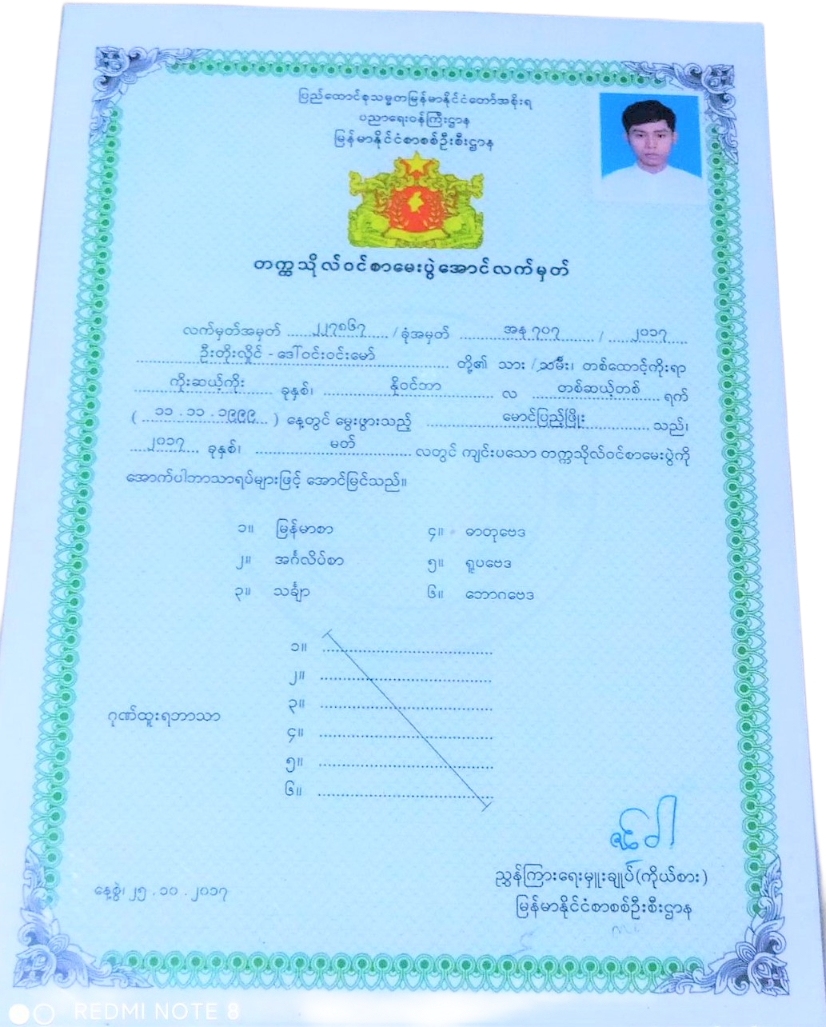 ပြည်ထောင်စုသမ္မတမြန်မာနိုင်ငံတော်အစိုးရ
ပညာရေးဝန်ကြီးဌာန
မြန်မာနိုင်ငံစာစစ်ဦးစီးဌာန
တက္ကသိုလ်ဝင်စာမေးပွဲအောင်လက်မှတ်
လက်မှတ်အမှတ် ၂၂၇၈၆၇ / ခုံအမှတ် အန ၇၀၇ / ၂၀၁၇
ဦးတိုးလှိုင် - ဒေါ်ဝင်းဝင်းမော် တို့၏ သား / သမီး၊ တစ်ထောင့်ကိုးရာ
ကိုးဆယ့်ကိုး ခုနှစ်၊ နိုဝင်ဘာ လ တစ်ဆယ့်တစ် ရက်
( ၁၁ . ၁၁ . ၁၉၉၉ ) နေ့တွင် မွေးဖွားသည့် မောင်ပြည့်ဖြိုး သည်၊
၂၀၁၇ ခုနှစ်၊ မတ် လတွင် ကျင်းပသော တက္ကသိုလ်ဝင်စာမေးပွဲကို
အောက်ပါဘာသာရပ်များဖြင့် အောင်မြင်သည်။
၁။ မြန်မာစာ ၄။ ဓာတုဗေဒ
၂။ အင်္ဂလိပ်စာ ၅။ ရူပဗေဒ
၃။ သင်္ချာ ၆။ ဘောဂဗေဒ
၁။
၂။
၃။
ဂုဏ်ထူးရဘာသာ
၄။
၅။
၆။
ညွှန်ကြားရေးမှူးချုပ်(ကိုယ်စား)
နေ့စွဲ၊ ၂၅ . ၁၀ . ၂၀၁၇
မြန်မာနိုင်ငံစာစစ်ဦးစီးဌာန
REDMI NOTE 8